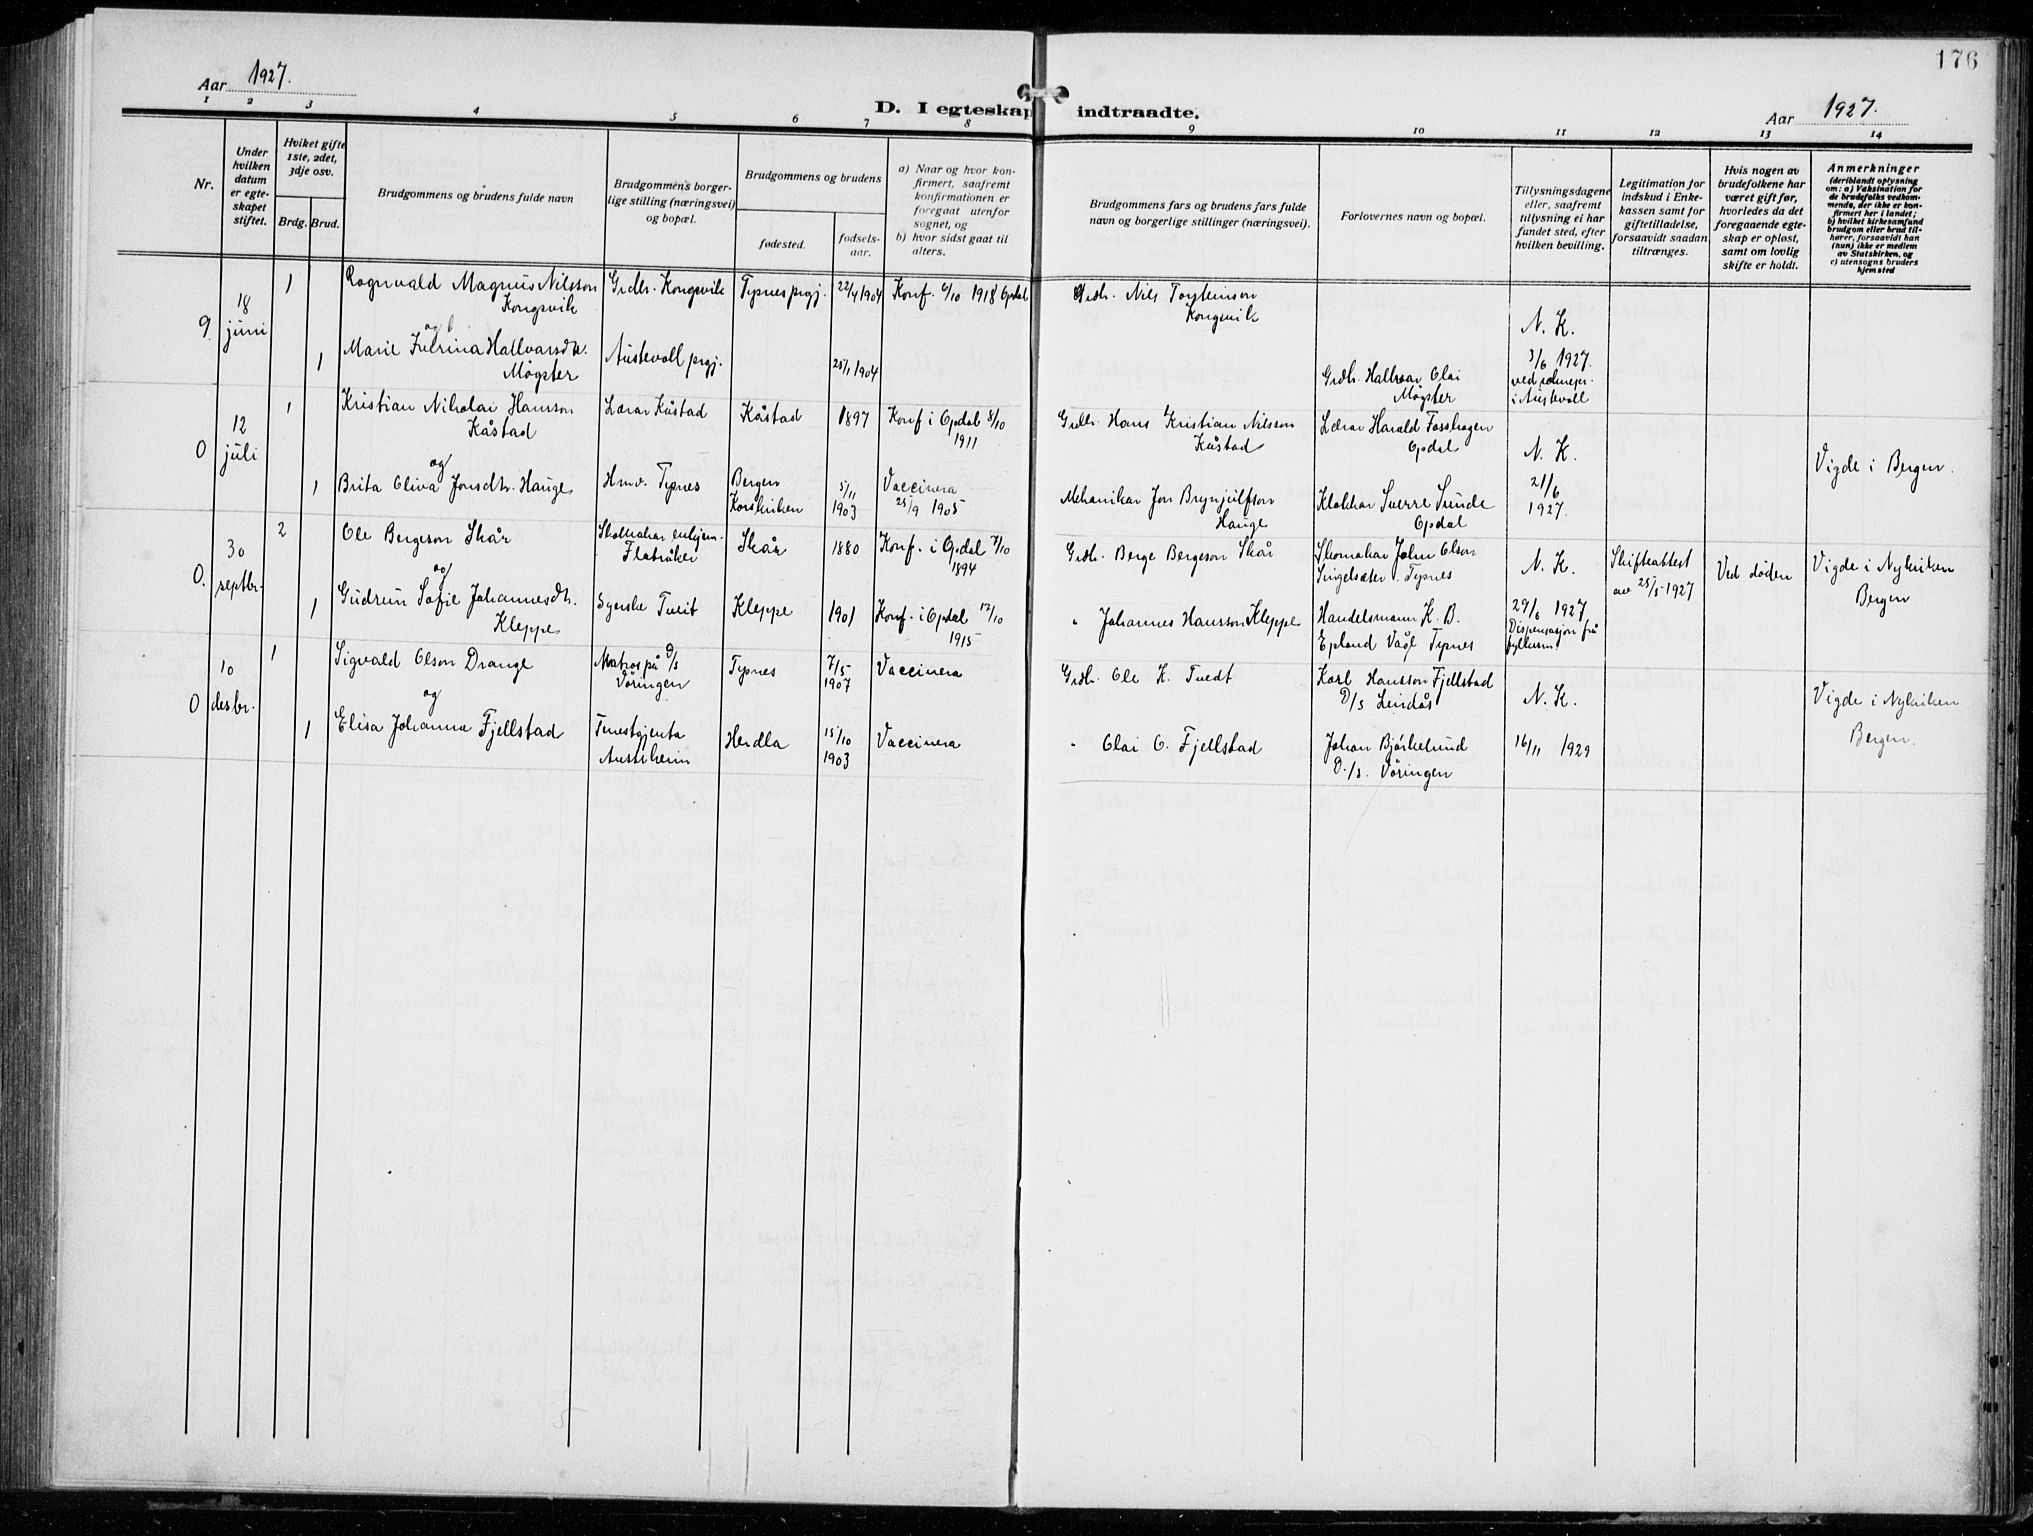 176
Aar 1927.
D. I egteskap indtraadte.
Aar 1927.
1 2 3 4 5 6 7 8 9 10 11 12 13 14
Nr.
Under hvilken datum er egteskapet stiftet.
Hvilket gifte 1ste, 2det, 3dje osv.
Brdg. Brud.
Brudgommens og brudens fulde navn
Brudgommens borgerlige stilling (næringsvei) og bopæl.
Brudgommens og brudens
fødested.
fødselsaar.
a) Naar og hvor konfirmert, saafremt konfirmationen er foregaat utenfor sognet, og
b) hvor sidst gaat til alters.
Brudgommens fars og brudens fars fulde navn og borgerlige stillinger (næringsvei).
Forlovernes navn og bopæl.
Tillysningsdagene eller, saafremt tillysning ei har fundet sted, efter hvilken bevilling.
Legitimation for indskud i Enkekassen samt for giftetilladelse, forsaavidt saadan tiltrænges.
Hvis nogen av brudefolkene har været gift før, hvorledes da det foregaaende egteskap er opløst, samt om lovlig skifte er holdt.
Anmerkninger
(deriblandt oplysning om: a) Vaksination for de brudefolks vedkommende, der ikke er konfirmert her i landet; b) hvilket kirkesamfund brudgom eller brud tilhører, forsaavidt han (hun) ikke er medlem av Statskirken, og c) utensogns bruders hjemsted
9 18 juni 1 Rognvald Magnus Nilsson Kongsvik Grdbr. Kongsvik Tysnes prgj. 22/4 1904 Konf. 6/10 1918 Opdal Grdb. Nils Torkinson Kongsvik N. K.
og
1 Marie Hallvarsdtr. Møgster Austevoll prgj. 25/1 1904 Grdb. Hallvar Olai Møgster 3/6 1927. ved i Austevoll
0 12 juli 1 Kristian Nikolai Hansson Kåstad Lærar Kåstad Kåstad 1897 Konf i Opdal 8/10 1911 Grdbr. Hans Kristian Nilsson Kåstad Lærar Harald Fosshagen Opdal N. K. Vigde i Bergen.
og
1 Brita Oliva Jonsdtr. Hauge Hmv. Tysnes Bergen Korskirken 5/11 1903 Vaccinera 25/9 1905 Mekanikar Jon Brynjulfson Hauge Klokkar Sverre Sunde Opdal 21/6 1927.
0. 30 septbr. 2 Ole Bergeson Skår Flatråker Skår 1880 Konf. i Opdal 7/10 1894 Grdb. Berge Bergeson Skår Skomakar John Olson Singelsæter Tysnes N. K. Skifteattest av 25/5 1927 Ved døden Vigde i Nykirken Bergen
og
1 Gudrun Sofie Johannesdtr. Kleppe Syerske Tveit Kleppe 1901 Konf. i Opdal 17/10 1915 " Johannes Hansson Kleppe Handelsmann K. B. Epland Våge Tysnes 29/6 1927 Dispensasjon frå fylkesm.
0 10 desbr. 1 Sigvald Olson Drange Matros på D/s Vøringen Tysnes 7/5 1907 Vaccinera Grdb. Ole K. Tvedt Karl Hansson Fjellstad D/s Lindås N. K. Vigde i Nykirken Bergen.
og
1 Elisa Johanna Fjellstad Tenestgjenta Austrheim Herdla 15/10 1903 Vaccinera " Olai O. Fjellstad Johan Bjørkelund D./s. Vøringen 16/11 1929